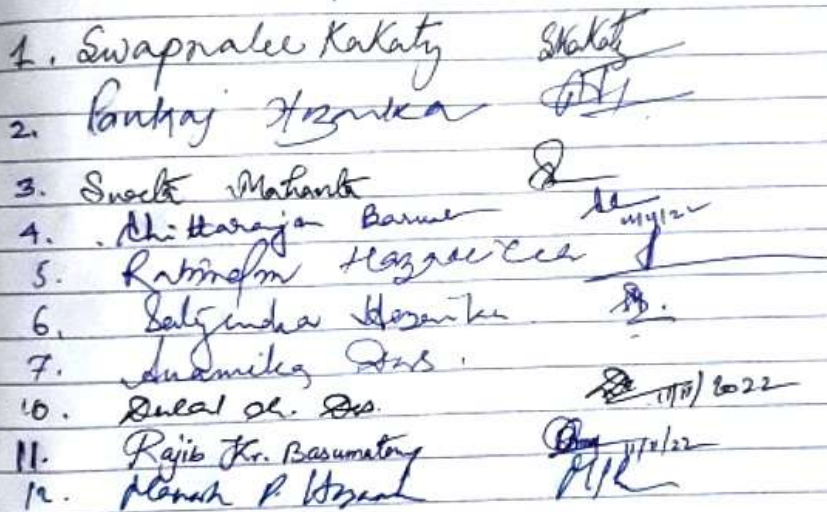 1. Swapnalee Kakaty SKakaty
2. Pankaj Hazarika
3. Sweta Mahanta
4. Chittaranjan Barua 11/11/22
5. Hazarika
6. Satyendra Hazarika
7. Anamika Das.
10. Dulal Ch. Das. 11/11/2022
11. Rajib Kr. Basumatary 11/11/22
12. Manash P.